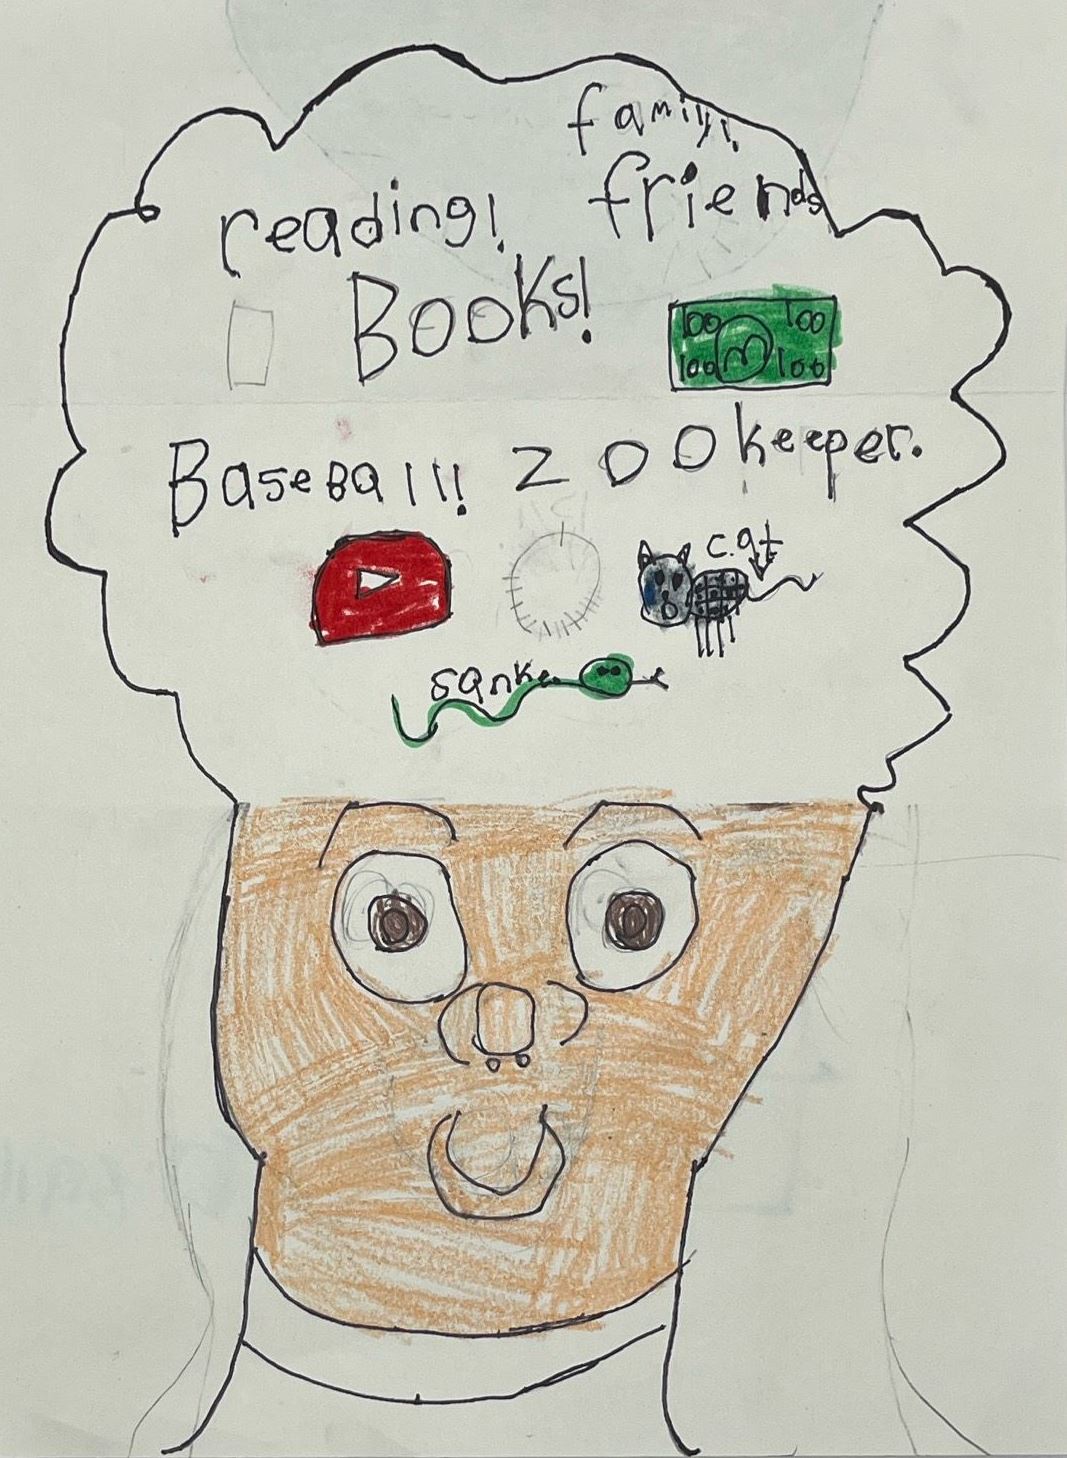 family!
friends
reading!
BOOKs!
100 100
100 100
BaseBall!!
zookeeper.
c.at
sanke